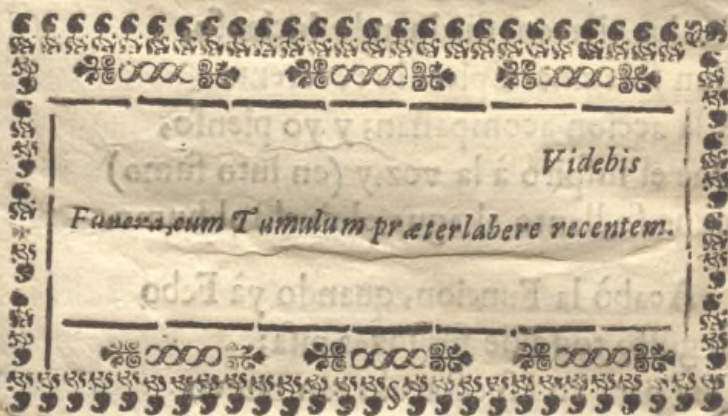 Videbis
Funera, cum Tumulum præterlabere recentem.